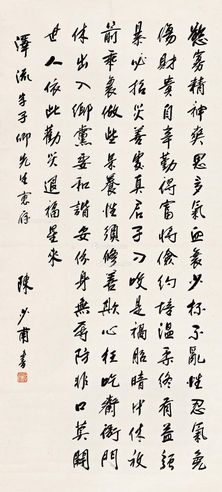 慾寡精神爽思多氣血衰少杯不亂性忍氣免
傷財貴自辛勤得富從儉約培溫柔終有益強
暴必招災善處真君子刁唆是禍胎暗中休放
箭乖裏做些呆養性須修善欺心枉吃齋衙門
休出入鄉黨要和諧安分身無辱防非口莫開
世人依此勸災退福星來
先生
陳少甫書